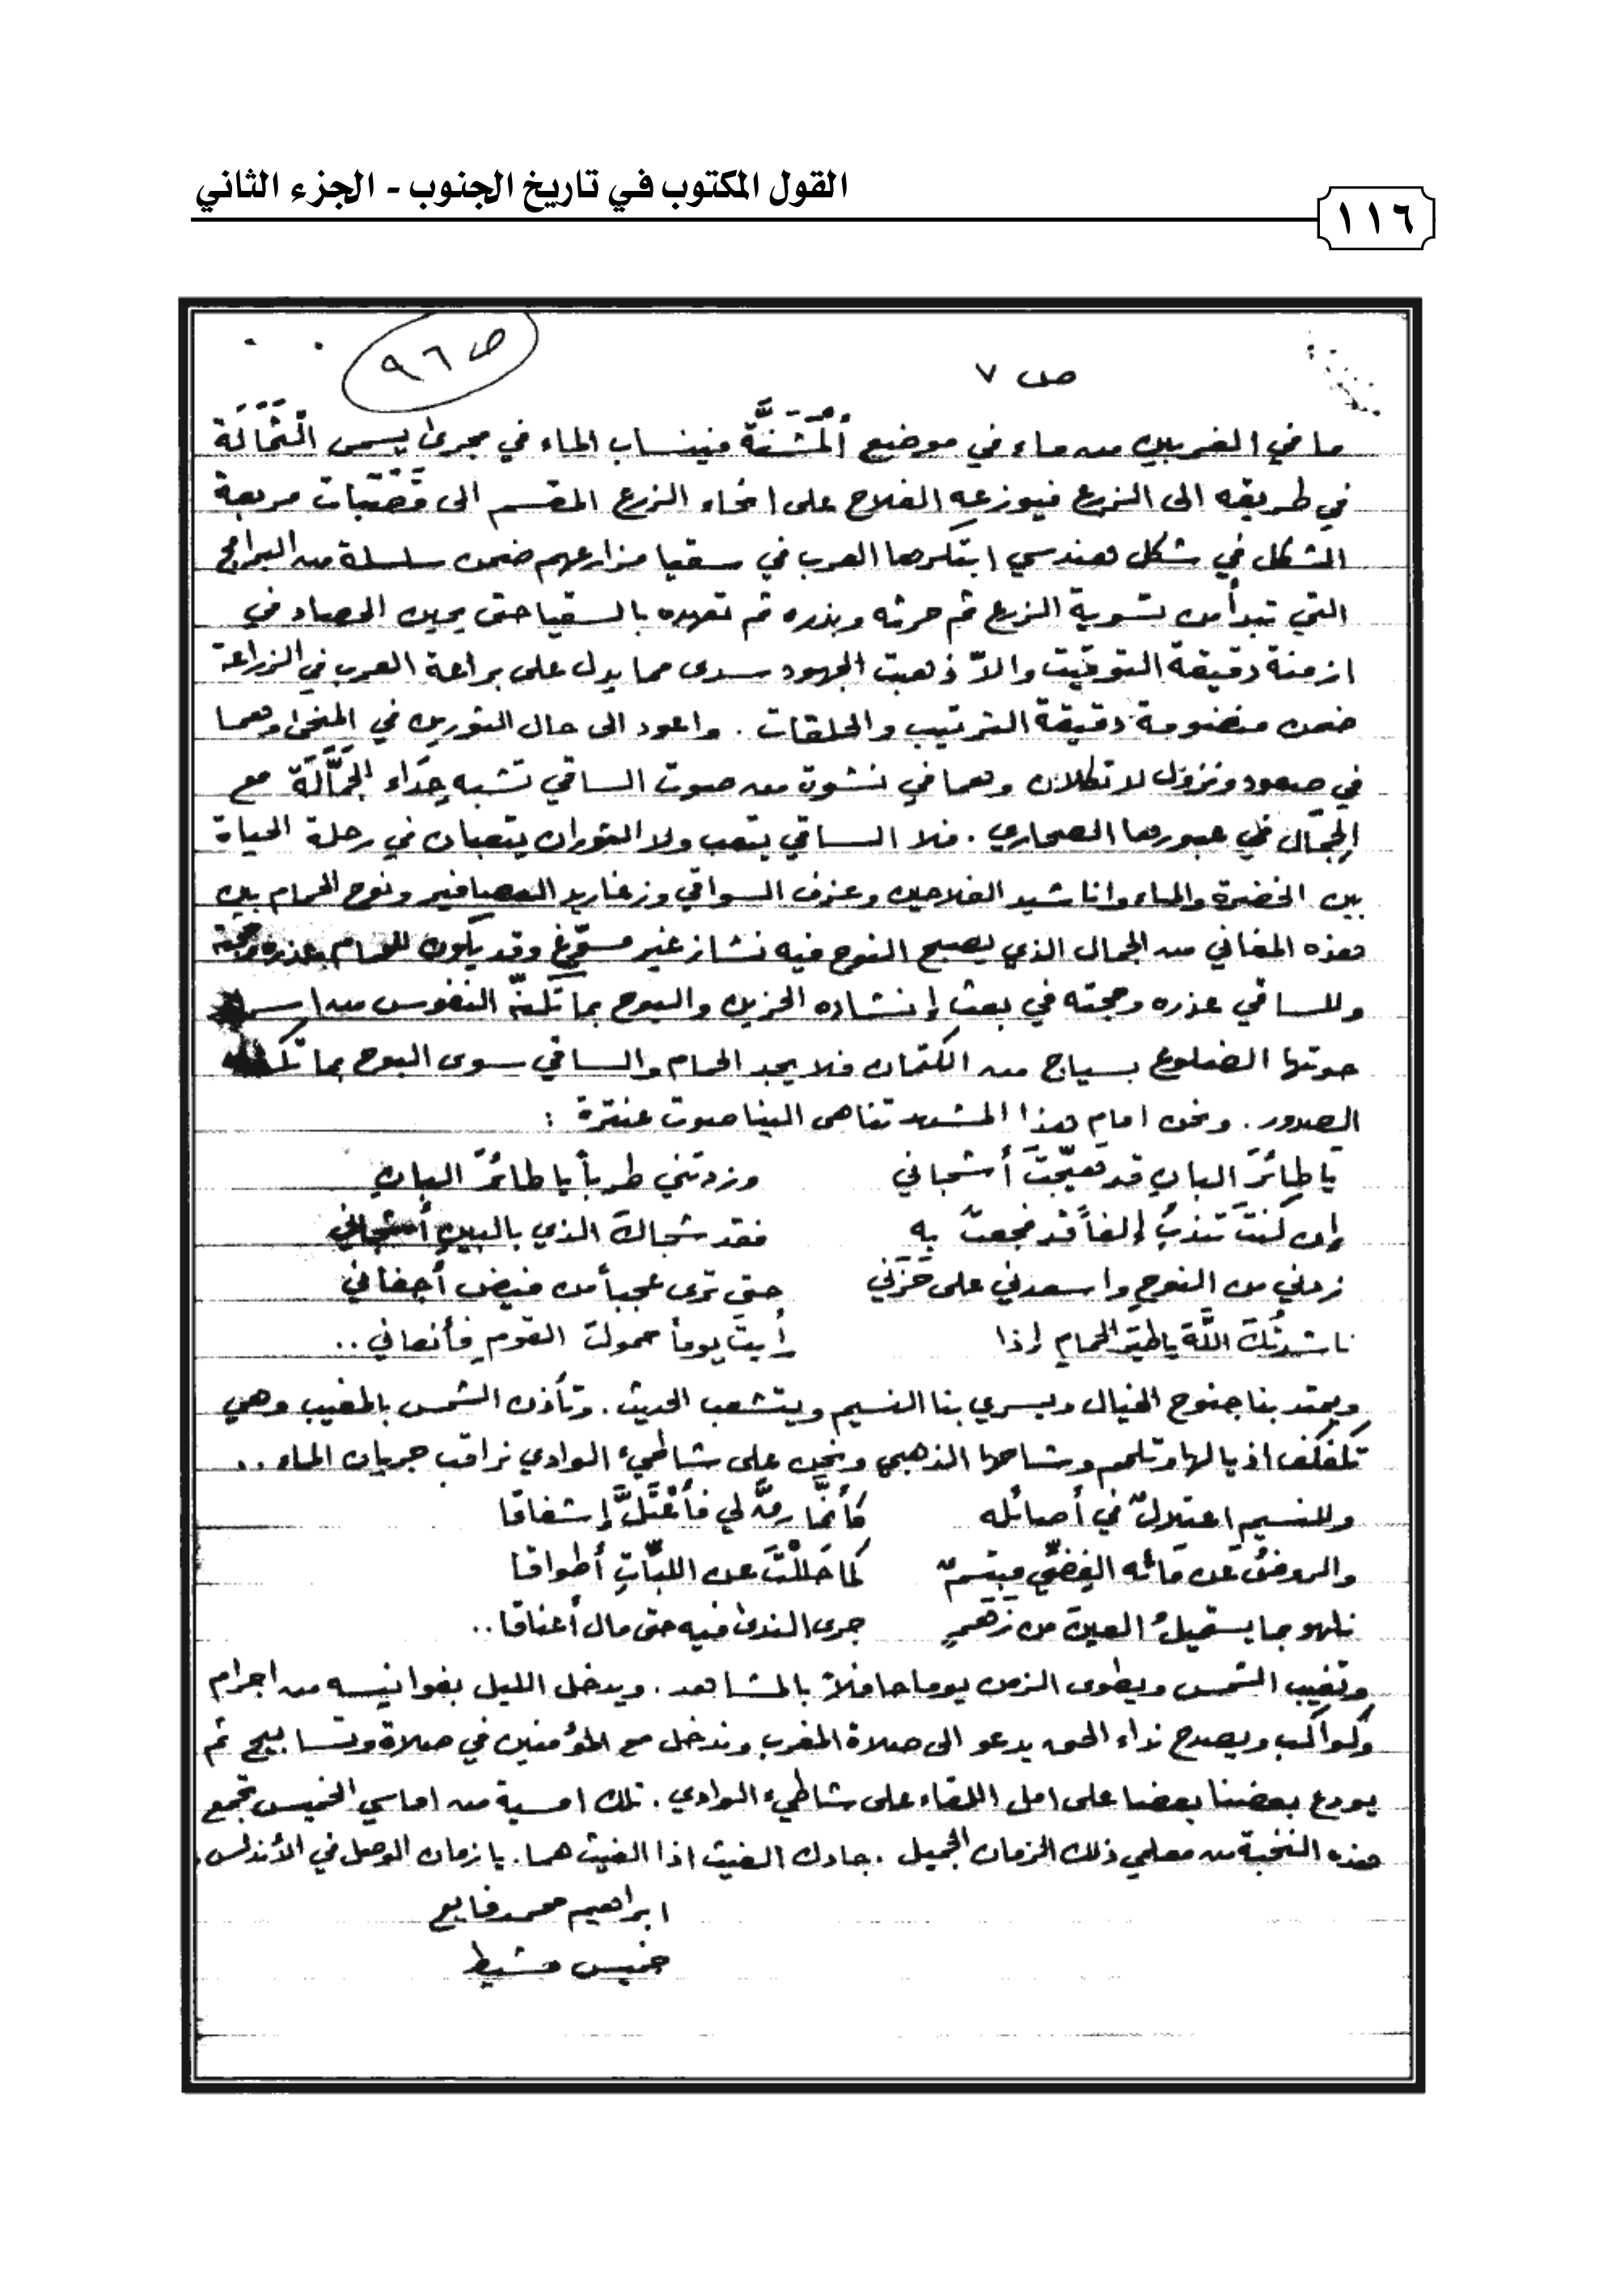 القول المكتوب في تاريخ الجنوب - الجزء الثاني
١١٦
ص ٩٦
ص ٧
ما في الغربين من ماء في موضع اَلْمَشَنَّة فينساب الماء في مجرىً يسمى الَثَّمَالَة
في طريقه الى الزرع فيوزعه الفلاح على انحاء الزرع المقسم الى قَصَبَات مربعة
الشكل في شكل هندسي ابتكرها العرب في سقيا مزارعهم ضمن سلسلة من البرامج
التي تبدأ من تسوية الزرع ثم حرثه وبذره ثم تعهده بالسقيا حتى يحين الحصاد في
ازمنة دقيقة التوقيت والاّ ذهبت الجهود سدى مما يدل على براعة العرب في الزراعة
ضمن منضومة دقيقة الترتيب والحلقات . واعود الى حال الثورين في المنحىٰ وهما
في صعود ونزول لا تكلان وهما في نشوة من صوت الساقي تشبه حِدَاء الجَمَّالَة مع
الجِمَال في عبورها الصحاري . فلا الساقي يتعب ولا الثوران يتعبان في رحلة الحياة
بين الخضرة والماء وانا شيد الفلاحين وعزف السواقي وزغاريد العصافير ونوح الحمام بين
هذه المغاني من الجمال الذي يصبح النوح فيه نشاز غير مسوّغ وقد يكون للحمام عذره وحجته
وللساقي عذره وحجته في بعث إنشاده الحزين والبوح بما تكنّه النفوس من
حوتها الضلوع بسياج من الكتمان فلا يجد الحمام والساقي سوى البوح بما
الصدور . ونحن امام هذا المشهد تناهى الينا صوت عنترة :
يا طائرَ البانِ قد هيّجتَ أشجاني وزدتني طرباً يا طائرَ البانِ
إن كنتَ تندبُ إلفاً قد فجعتَ به فقد شجاكَ الذي بالبينِ أشجاني
زدني من النوحِ واسعدني على حَزَني حتى ترى عجباً من فيض أجفاني
ناشدتُكَ اللَّهَ يا طيرَ الحمامِ إذا رأيتَ يوماً حمولَ القومِ فأنعاني ..
ويمتد بنا جنوح الخيال ويسري بنا النسيم ويتشعب الحديث . وتأذن الشمس بالمغيب وهي
تكفكف اذيالها وتلمم وشاحها الذهبي ونحن على شاطيء الوادي نراقب جريان الماء ..
وللنسيمِ اعتلالٌ في أصائله كأنَّما رقَّ لي فأعْتَلَّ إشفاقا
والروضُ عن مَائه الفِضِّي مبتسمٌ كما حَلَلْتَ عن اللبّاتِ أطواقا
نلهو بما يستميلُ العينَ من زَهَرٍ جرى الندىٰ فيه حتى مال أعناقا ..
وتغيب الشمس ويطوى الزمن يوما حافلاً بالمشاهد . ويدخل الليل بفوانيسه من اجرام
وكواكب ويصدح نداء الحق يدعو الى صلاة المغرب وندخل مع المؤمنين في صلاة وتسابيح ثم
يودع بعضنا بعضا على امل اللقاء على شاطيء الوادي . تلك امسية من اماسي الخميس تجمع
هذه النخبة من معلمي ذلك الزمان الجميل . جادك الغيث اذا الغيث هما . يا زمان الوصل في الأندلس .
ابراهيم محمد فايع
خميس مشيط